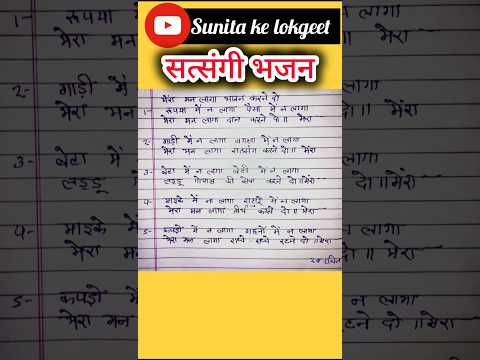 Sunita ke lokgeet
सत्संगी भजन
मेरा मन लागा भजन करने दो
1- रूपया में न लागा पैसा में न लागा
मेरा मन लागा दान करने दो॥ मेरा
2- गाड़ी में न लागा बंगला में न लागा
मेरा मन लागा सत्संग करने दो॥ मेरा
3- बेटा में न लागा बेटी में न लागा
लड्डू गोपाल की सेवा करने दो॥ मेरा
4- माइके में ना लागा ससुरे में न लागा
मेरा मन लागा तीर्थ करने दो॥ मेरा
5- कपड़ों में न लागा गहनों में न लागा
मेरा मन लागा राधे राधे रटने दो॥ मेरा
1- रूपया में
मेरा मन
लागा
मेरा
2- गाड़ी में
मेरा म
लागा
दो॥ मेरा
3- बेटा में
लड्डू
दो॥ मेरा
4- माइके
मेरा
लागा
दो॥ मेरा
5- कपड़ों
मेरा मन
न लागा
रटने दो॥ मेरा